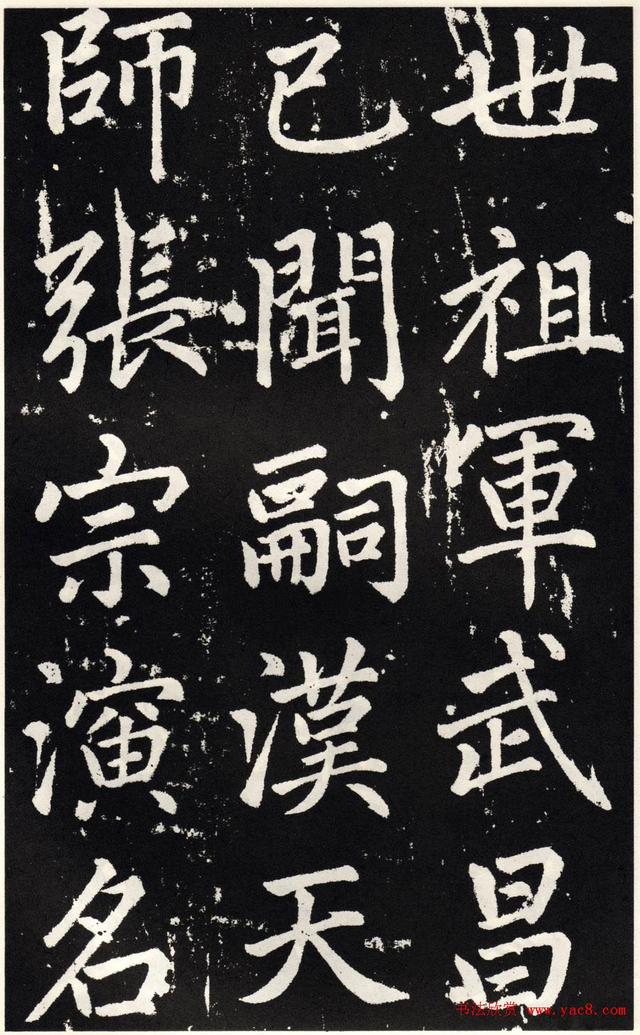 世祖軍武昌
已聞嗣漢天
師張宗演名
书法欣赏 www.yac8.com